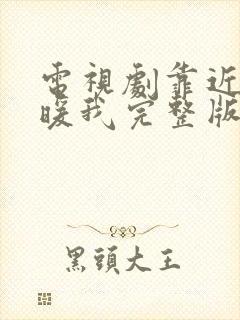 電視劇靠近
暖我完整版
黑頭大王